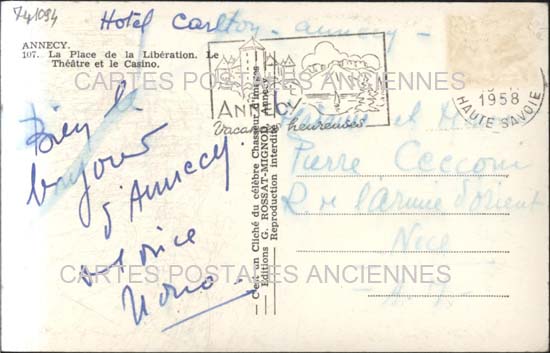 741094
Hotel Carlton - annecy -
ANNECY.
107. La Place de la Libération. Le
Théâtre et le Casino.
Bien le
bonjour
d'Annecy
Nono
C'est un Cliché du célèbre Chasseur d'images
Editions G. ROSSAT-MIGNOD, Annecy
Reproduction interdite
ANNECY
Vacances heureuses
1958
HAUTE SAVOIE
et
Pierre Cecconi
R de l'armée d'orient
Nice
A. M.
CARTES POSTALES ANCIENNES
CARTES POSTALES ANCIENNES